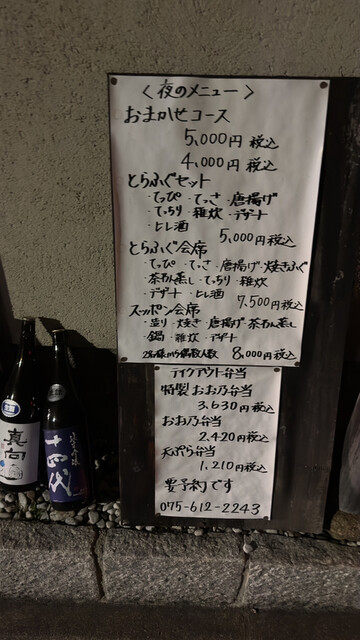 〈夜のメニュー〉
おまかせコース
5,000円 税込
4,000円 税込
とらふぐセット
・てっぴ ・てっさ ・唐揚げ
・てっちり ・雑炊 ・デザート
・ヒレ酒
5,000円税込
とらふぐ会席
・てっぴ ・てっさ ・唐揚げ ・焼きふぐ
・茶わん蒸し ・てっちり ・雑炊
・デザート ・ヒレ酒
7,500円税込
スッポン会席
・造り ・焼き ・唐揚げ ・茶わん蒸し
・鍋 ・雑炊 ・デザート
8,000円税込
テイクアウト弁当
特製 おお乃弁当
3,630円税込
おお乃弁当
2,420円税込
天ぷら弁当
1,210円税込
要予約です
075-612-2243
真向
十四代